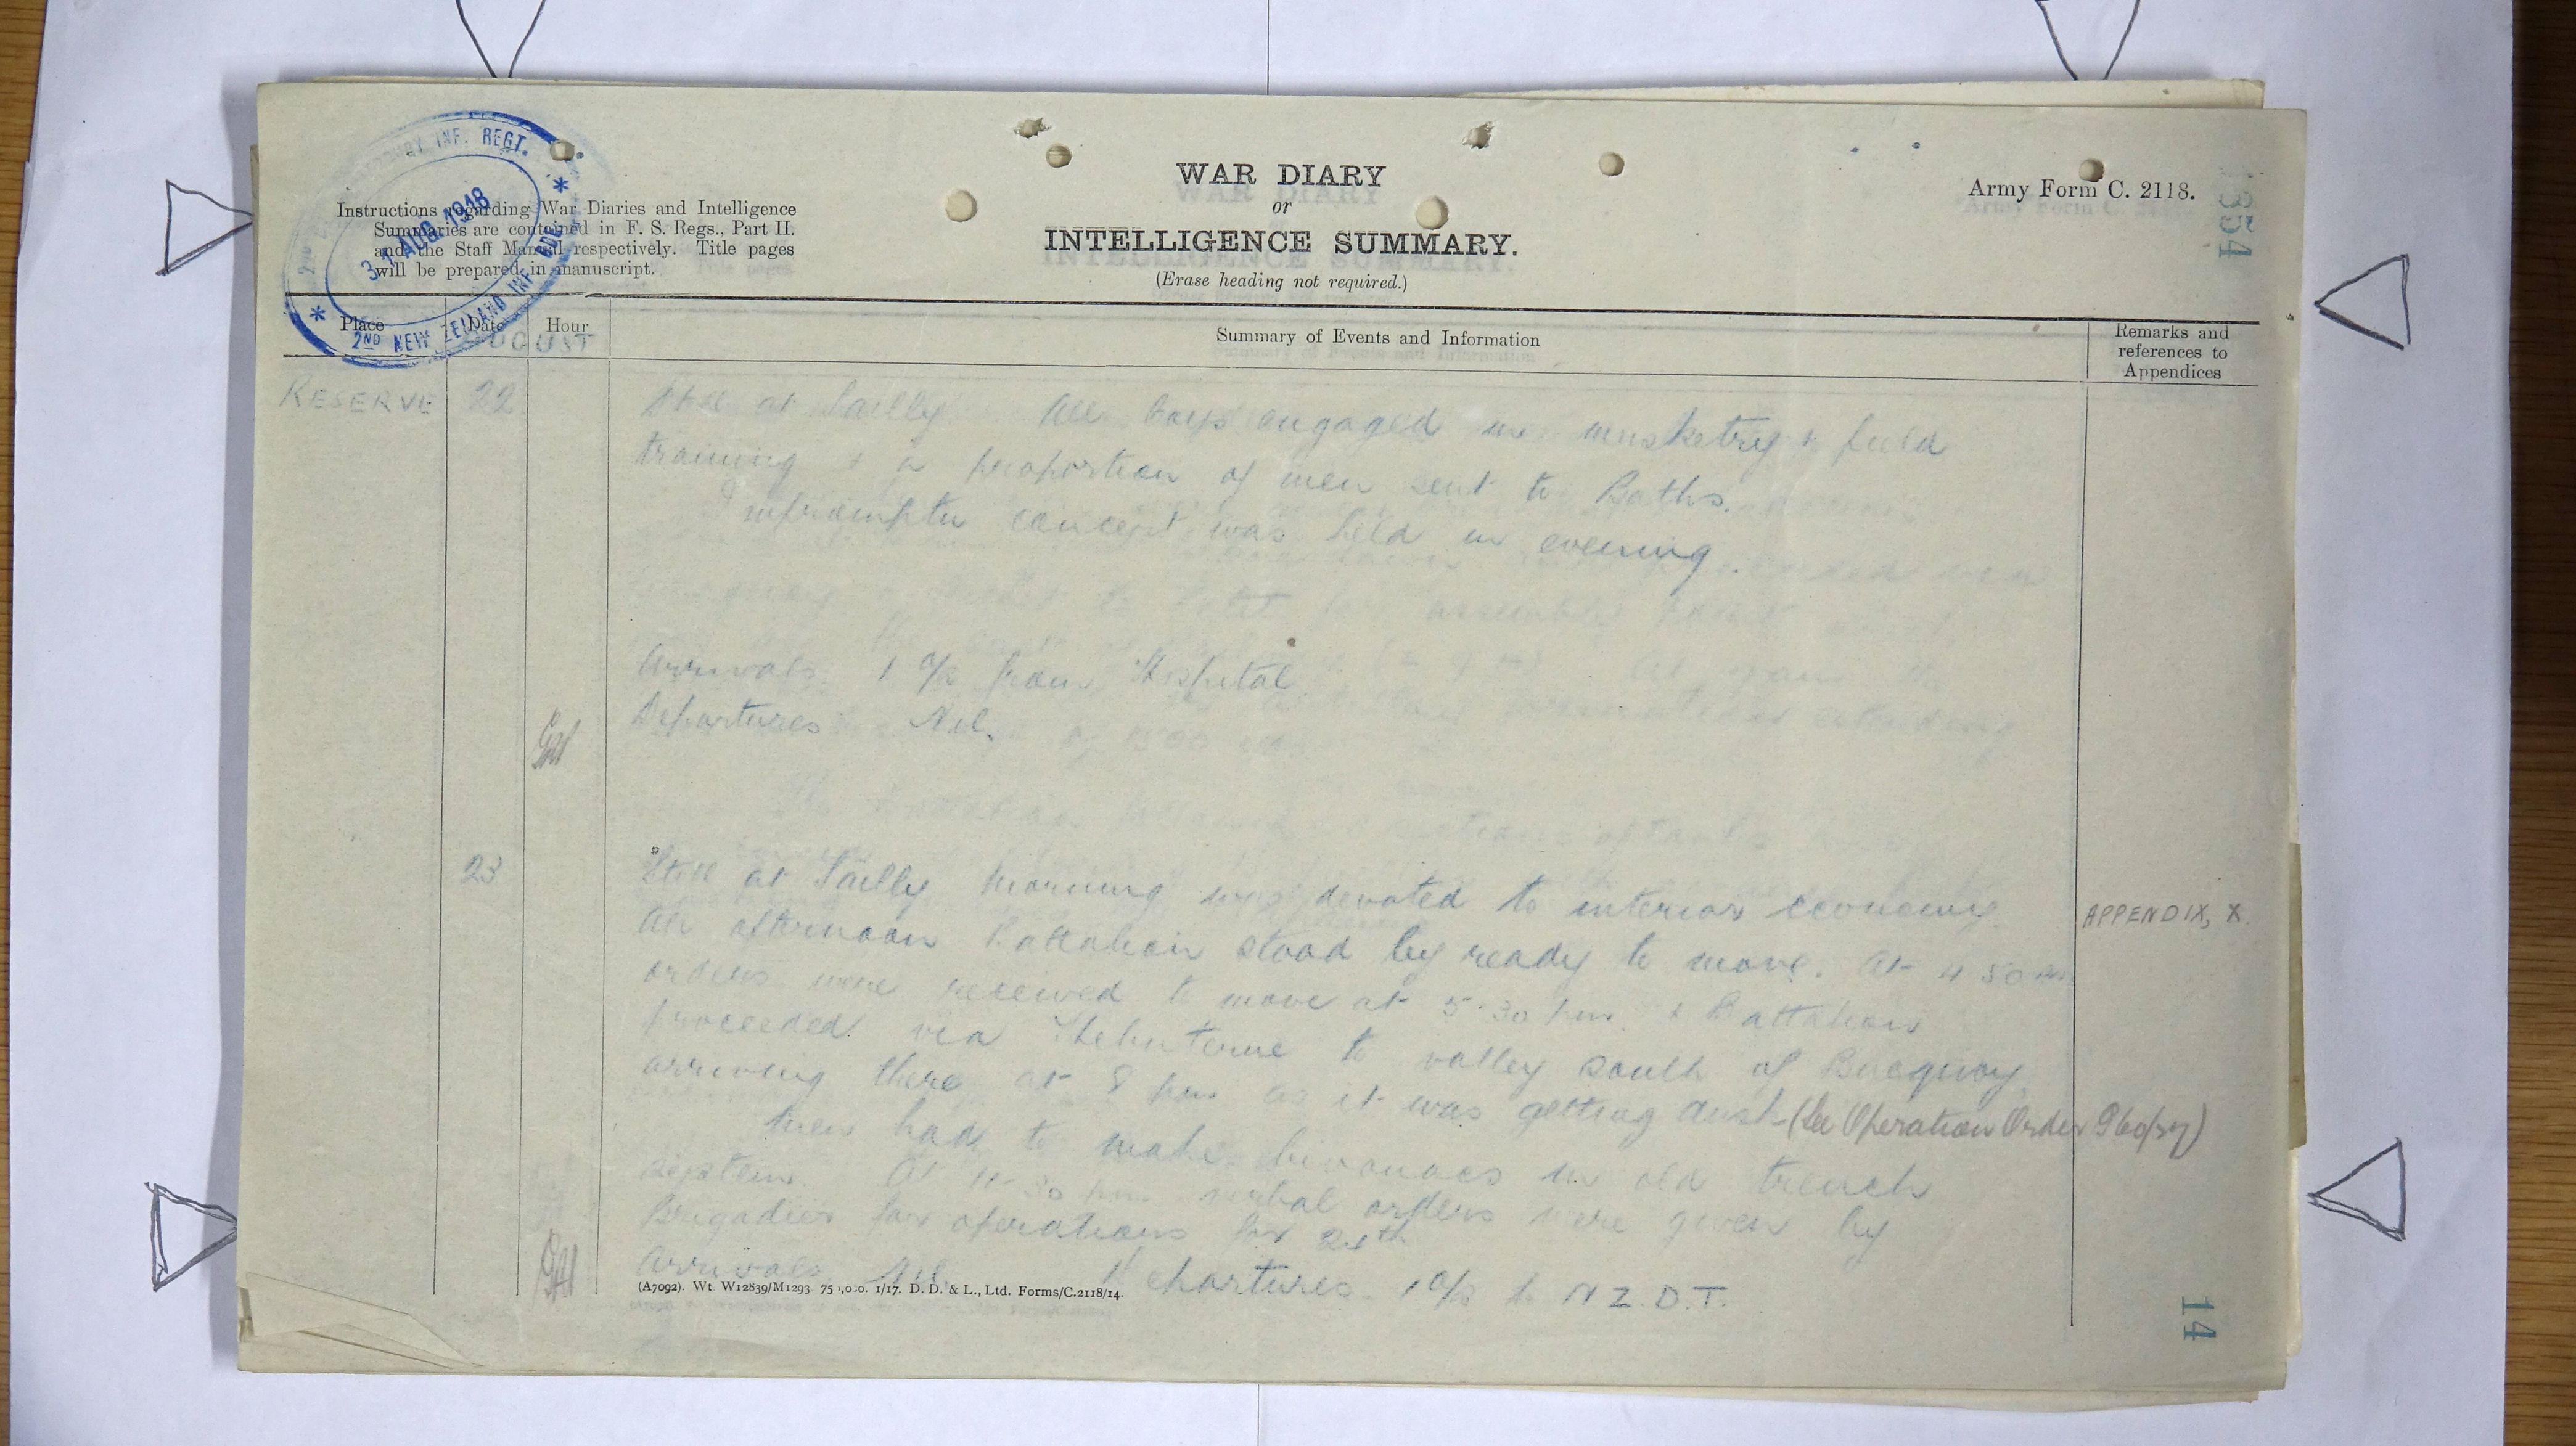 WAR DIARY
or
INTELLIGENCE SUMMARY.
(Erase heading not required.)
Army Form C. 2118.
1354
INF. REGT.
31 AUG 1918
2ND NEW ZEALAND INF BDE
Instructions regarding War Diaries and Intelligence
Summaries are contained in F. S. Regs., Part II.
and the Staff Manual respectively. Title pages
will be prepared in manuscript.
Place Date Hour Summary of Events and Information Remarks and references to Appendices
AUGUST
RESERVE 22 Still at Sailly. All Coys engaged in musketry & field
training & a proportion of men sent to Baths.
Impromptu concert was held in evening.
Arrivals 1 O/R from Hospital
Departures Nil.
23 Still at Sailly Morning was devoted to interior economy APPENDIX, X.
All afternoon Battalion stood by ready to move. At 4 50 pm
orders were received to move at 5.30 pm. & Battalion
proceeded via Hebuterne to valley South of Bucquoy
arriving there at 8 pm as it was getting dusk (See Operation Order
Men had to make bivouacs in old trench
system. At 11-30 pm. verbal orders were given by
Brigadier for operations for 24th
Arrivals Nil. Departures. 1 O/R to N Z. D.T.
(A7092). Wt. W12839/M1293. 1/17. D. D. & L., Ltd. Forms/C.2118/14.
14